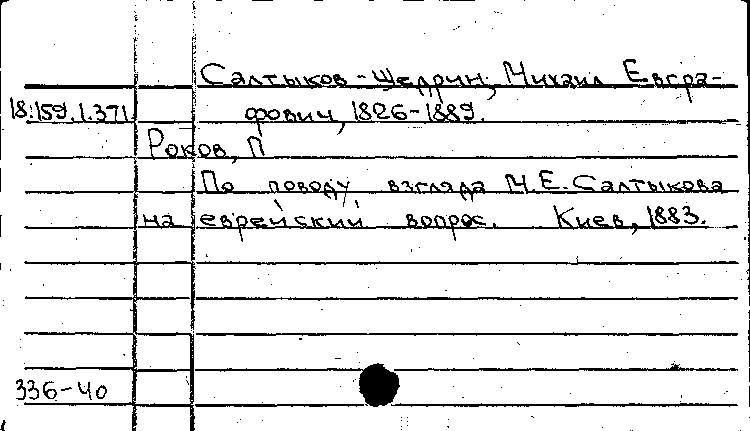 Салтыков-Щедрин, Михаил Евгра-
18.159.1.371 фович, 1826-1889.
Роков, П
По поводу взгляда М.Е.Салтыкова
на еврейский вопрос. Киев, 1883.
336-40